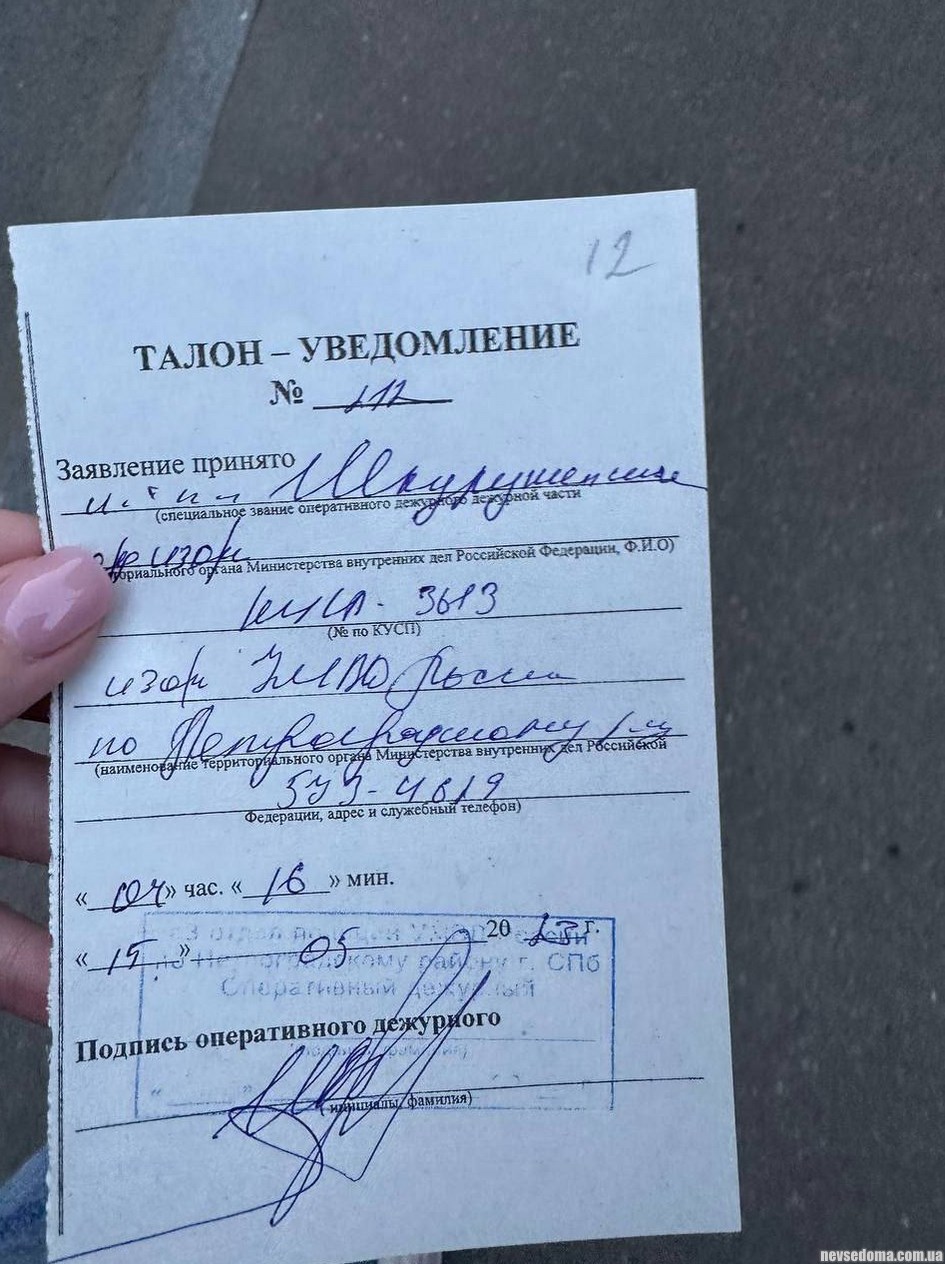 12
ТАЛОН – УВЕДОМЛЕНИЕ
№ 112
Заявление принято
(специальное звание оперативного дежурного дежурной части
органа Министерства внутренних дел Российской Федерации, Ф.И.О)
КУСП - 3613
(№ по КУСП)
УМВД России
по Петроградскому
(наименование территориального органа Министерства внутренних дел Российской
573-4819
Федерации, адрес и служебный телефон)
«04» час. «16» мин.
«15» 05 2023 г.
отдел полиции УМВД России
по Петроградскому району г. СПб
Оперативный дежурный
Подпись оперативного дежурного
(инициалы, фамилия)
nevsedoma.com.ua